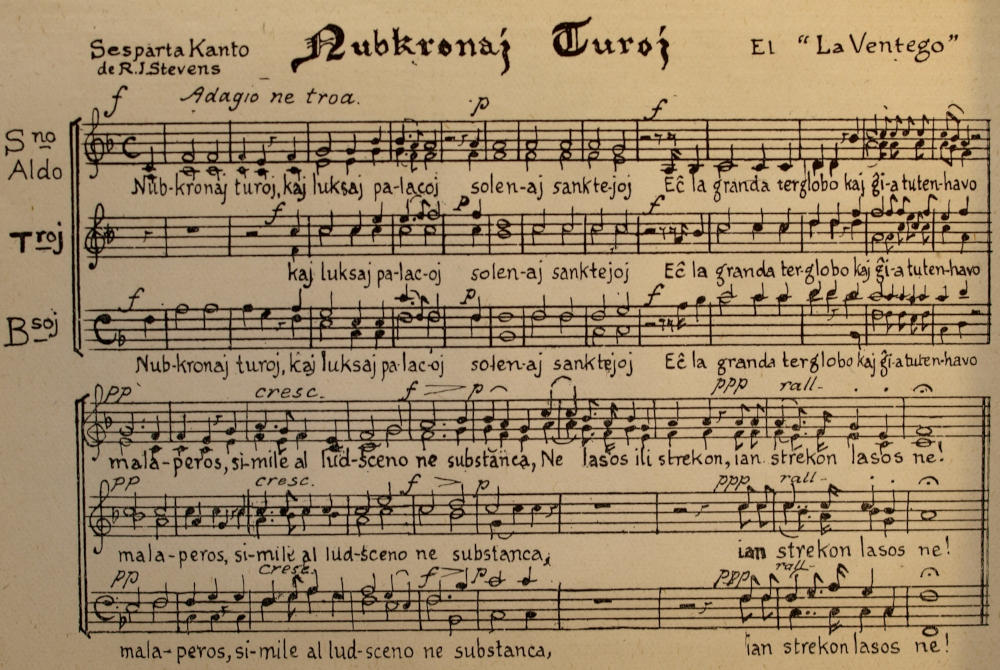 Sesparta Kanto
de R.J.Stevens
Nubkronaj Turoj
El "La Ventego"
f Adagio ne troa. p f
Sno
Aldo
Nub-kronaj turoj, kaj luksaj pa-lacoj solen-aj sankte-joj Eĉ la granda terglobo kaj ĝi-a tuten-havo
f p f
Troj
kaj luksaj pa-lac-oj solen-aj sanktejoj Eĉ la granda ter-globo kaj ĝi-a tuten-havo
f p f
Bsoj
Nub-kronaj turoj, kaj luksaj pa-lac-oj solen-aj sanktejoj Eĉ la granda terglobo kaj ĝi-a tuten-havo
pp cresc. f p ppp rall.
mala-peros, si-mile al lud-sceno ne substanca, Ne lasos ili strekon, ian strekon lasos ne!
pp cresc. f p ppp rall.
mala-peros, si-mile al lud-sceno ne substanca, ian strekon lasos ne!
pp cresc. f p ppp rall.
mala-peros, si-mile al lud-sceno ne substanca, ian strekon lasos ne!